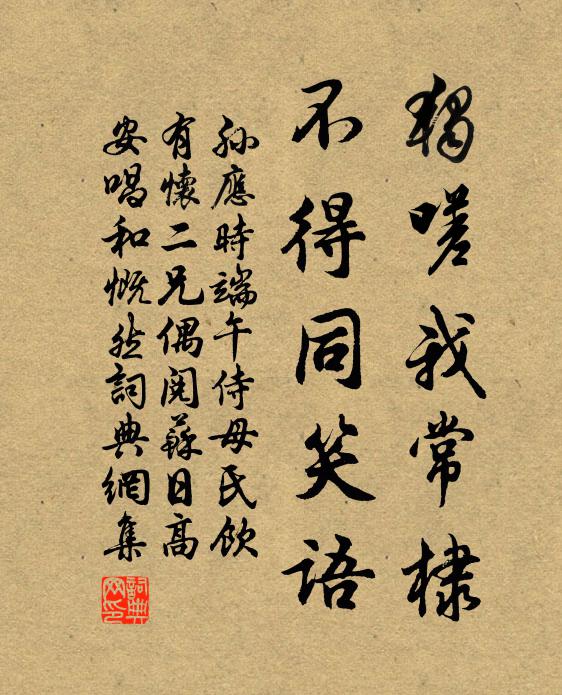 獨嗟我常棣
不得同笑語
孫應時端午侍母氏飲
有懷二兄偶閱蘇日高
安唱和慨然詞典網集
詞典
网印